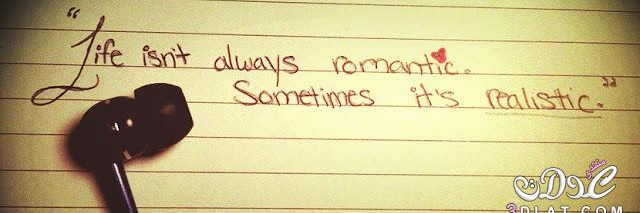 "Life isn't always romantic.
Sometimes it's realistic."
منتدى
عدلات
3DLAT.COM